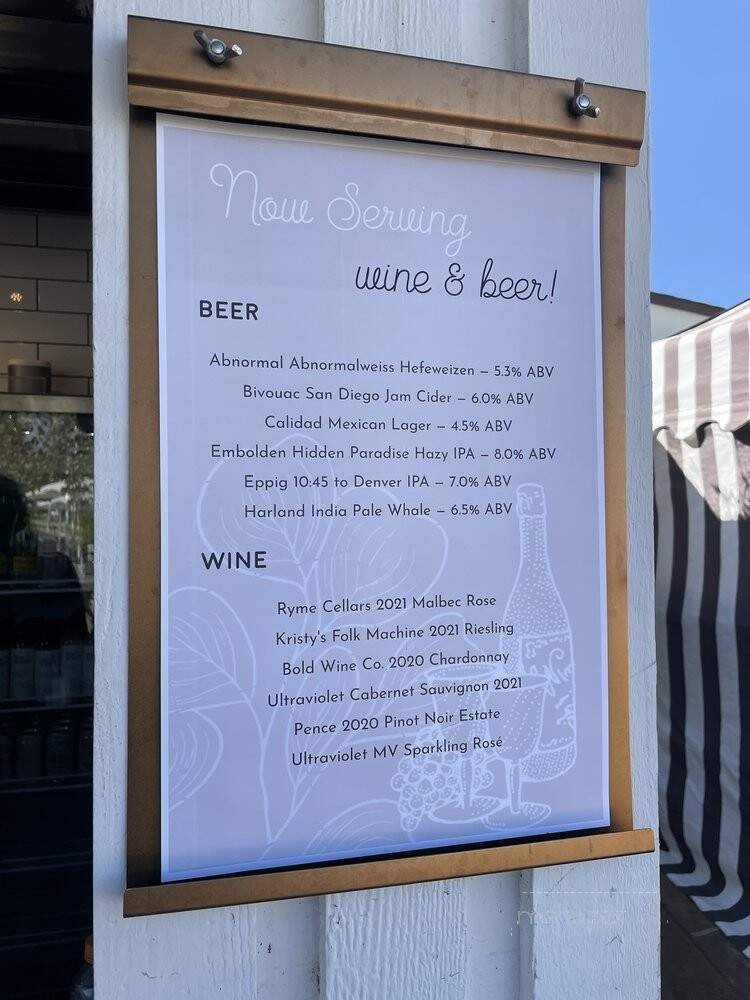 Now Serving
wine & beer!
BEER
Abnormal Abnormalweiss Hefeweizen – 5.3% ABV
Bivouac San Diego Jam Cider – 6.0% ABV
Calidad Mexican Lager – 4.5% ABV
Embolden Hidden Paradise Hazy IPA – 8.0% ABV
Eppig 10:45 to Denver IPA – 7.0% ABV
Harland India Pale Whale – 6.5% ABV
WINE
Ryme Cellars 2021 Malbec Rose
Kristy's Folk Machine 2021 Riesling
Bold Wine Co. 2020 Chardonnay
Ultraviolet Cabernet Sauvignon 2021
Pence 2020 Pinot Noir Estate
Ultraviolet MV Sparkling Rosé